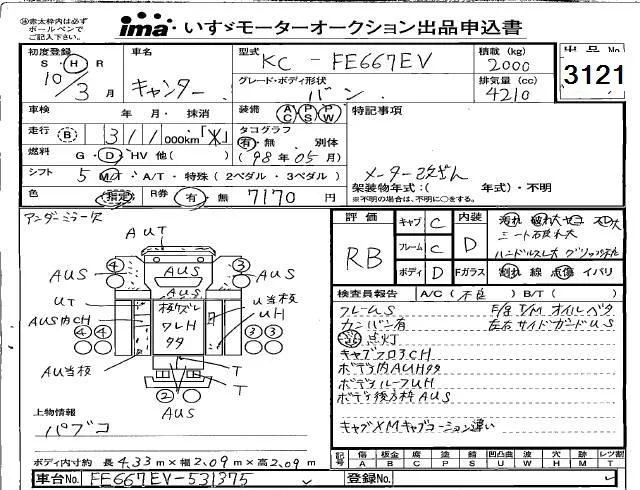 ※赤太枠内は必ず
ボールペンで
ご記入下さい。
ima いすゞモーターオークション出品申込書
初度登録
S H R
10/3月
車名
キャンター
型式
KC - FE667EV
グレード・ボディ形状
バン
積載 (kg)
2000
排気量 (cc)
4210
出品No
3121
車検 年 月・抹消
装備 AC PS PW
特記事項
走行 B 311 000km「メ」
タコグラフ
有・無 別体
(98年05月)
燃料 G・D・HV 他( )
シフト 5 MT・A/T・特殊(2ペダル・3ペダル)
メーター改ざん
架装物年式:( 年式)・不明
※不明の場合は、不明に○をする。
色 指定 R券 有・無 7170円
アンダーミラー欠
AUT
AUS
AUS
AUS
AUS
UT
AUS内CH
AU当板
U当板
UH
T
T
AUS
④ ④ ③ ④ ④ ③ ③ ②
評価
RB
キャブ C
フレーム C
ボディ D
内装 D
Fガラス
汚れ 破れ大 ヤニコゲ大
シート破れ大
割れ 線 点傷 イバリ
検査員報告 A/C(不良) B/T( )
フレームS
カンバン有
点灯
F/B T/M オイルベタ
左右サイドガードUS
キャブフロア3CH
ボディ内AUH99
ボディルーフUH
ボディ後方枠AUS
キャブXMキャブコーション違い
上物情報
パブコ
ボディ内寸約 長4.33m×幅2.09m×高2.09m
記号
傷 板金 腐 塗 錆 凹凸曲 波 穴 跡 レツ割
A B C P S U W H M T
車台No. FE667EV-531375
登録No.